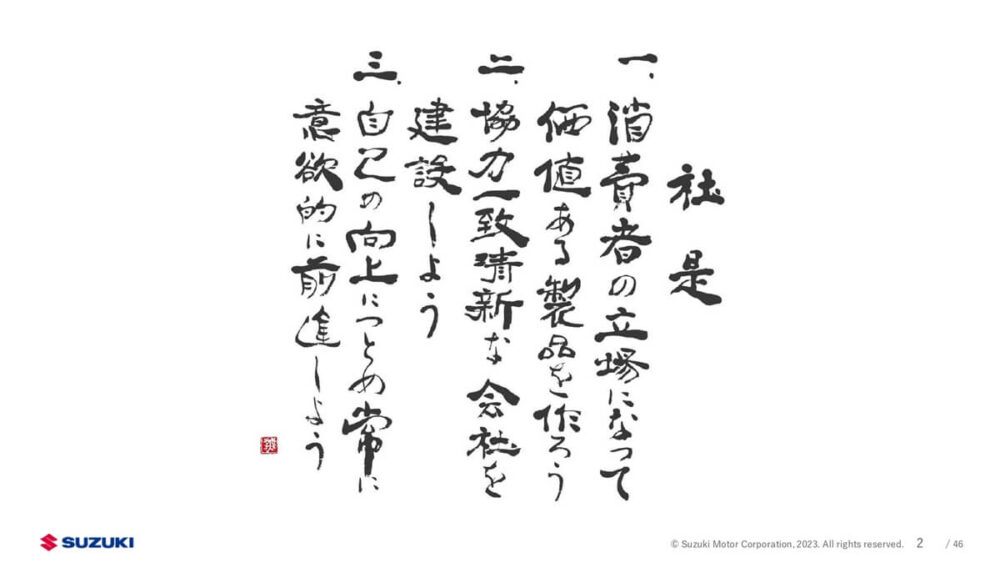 社是
一、消費者の立場になって
価値ある製品を作ろう
二、協力一致清新な会社を
建設しよう
三、自己の向上につとめ常に
意欲的に前進しよう
SUZUKI
© Suzuki Motor Corporation, 2023. All rights reserved. 2 / 46